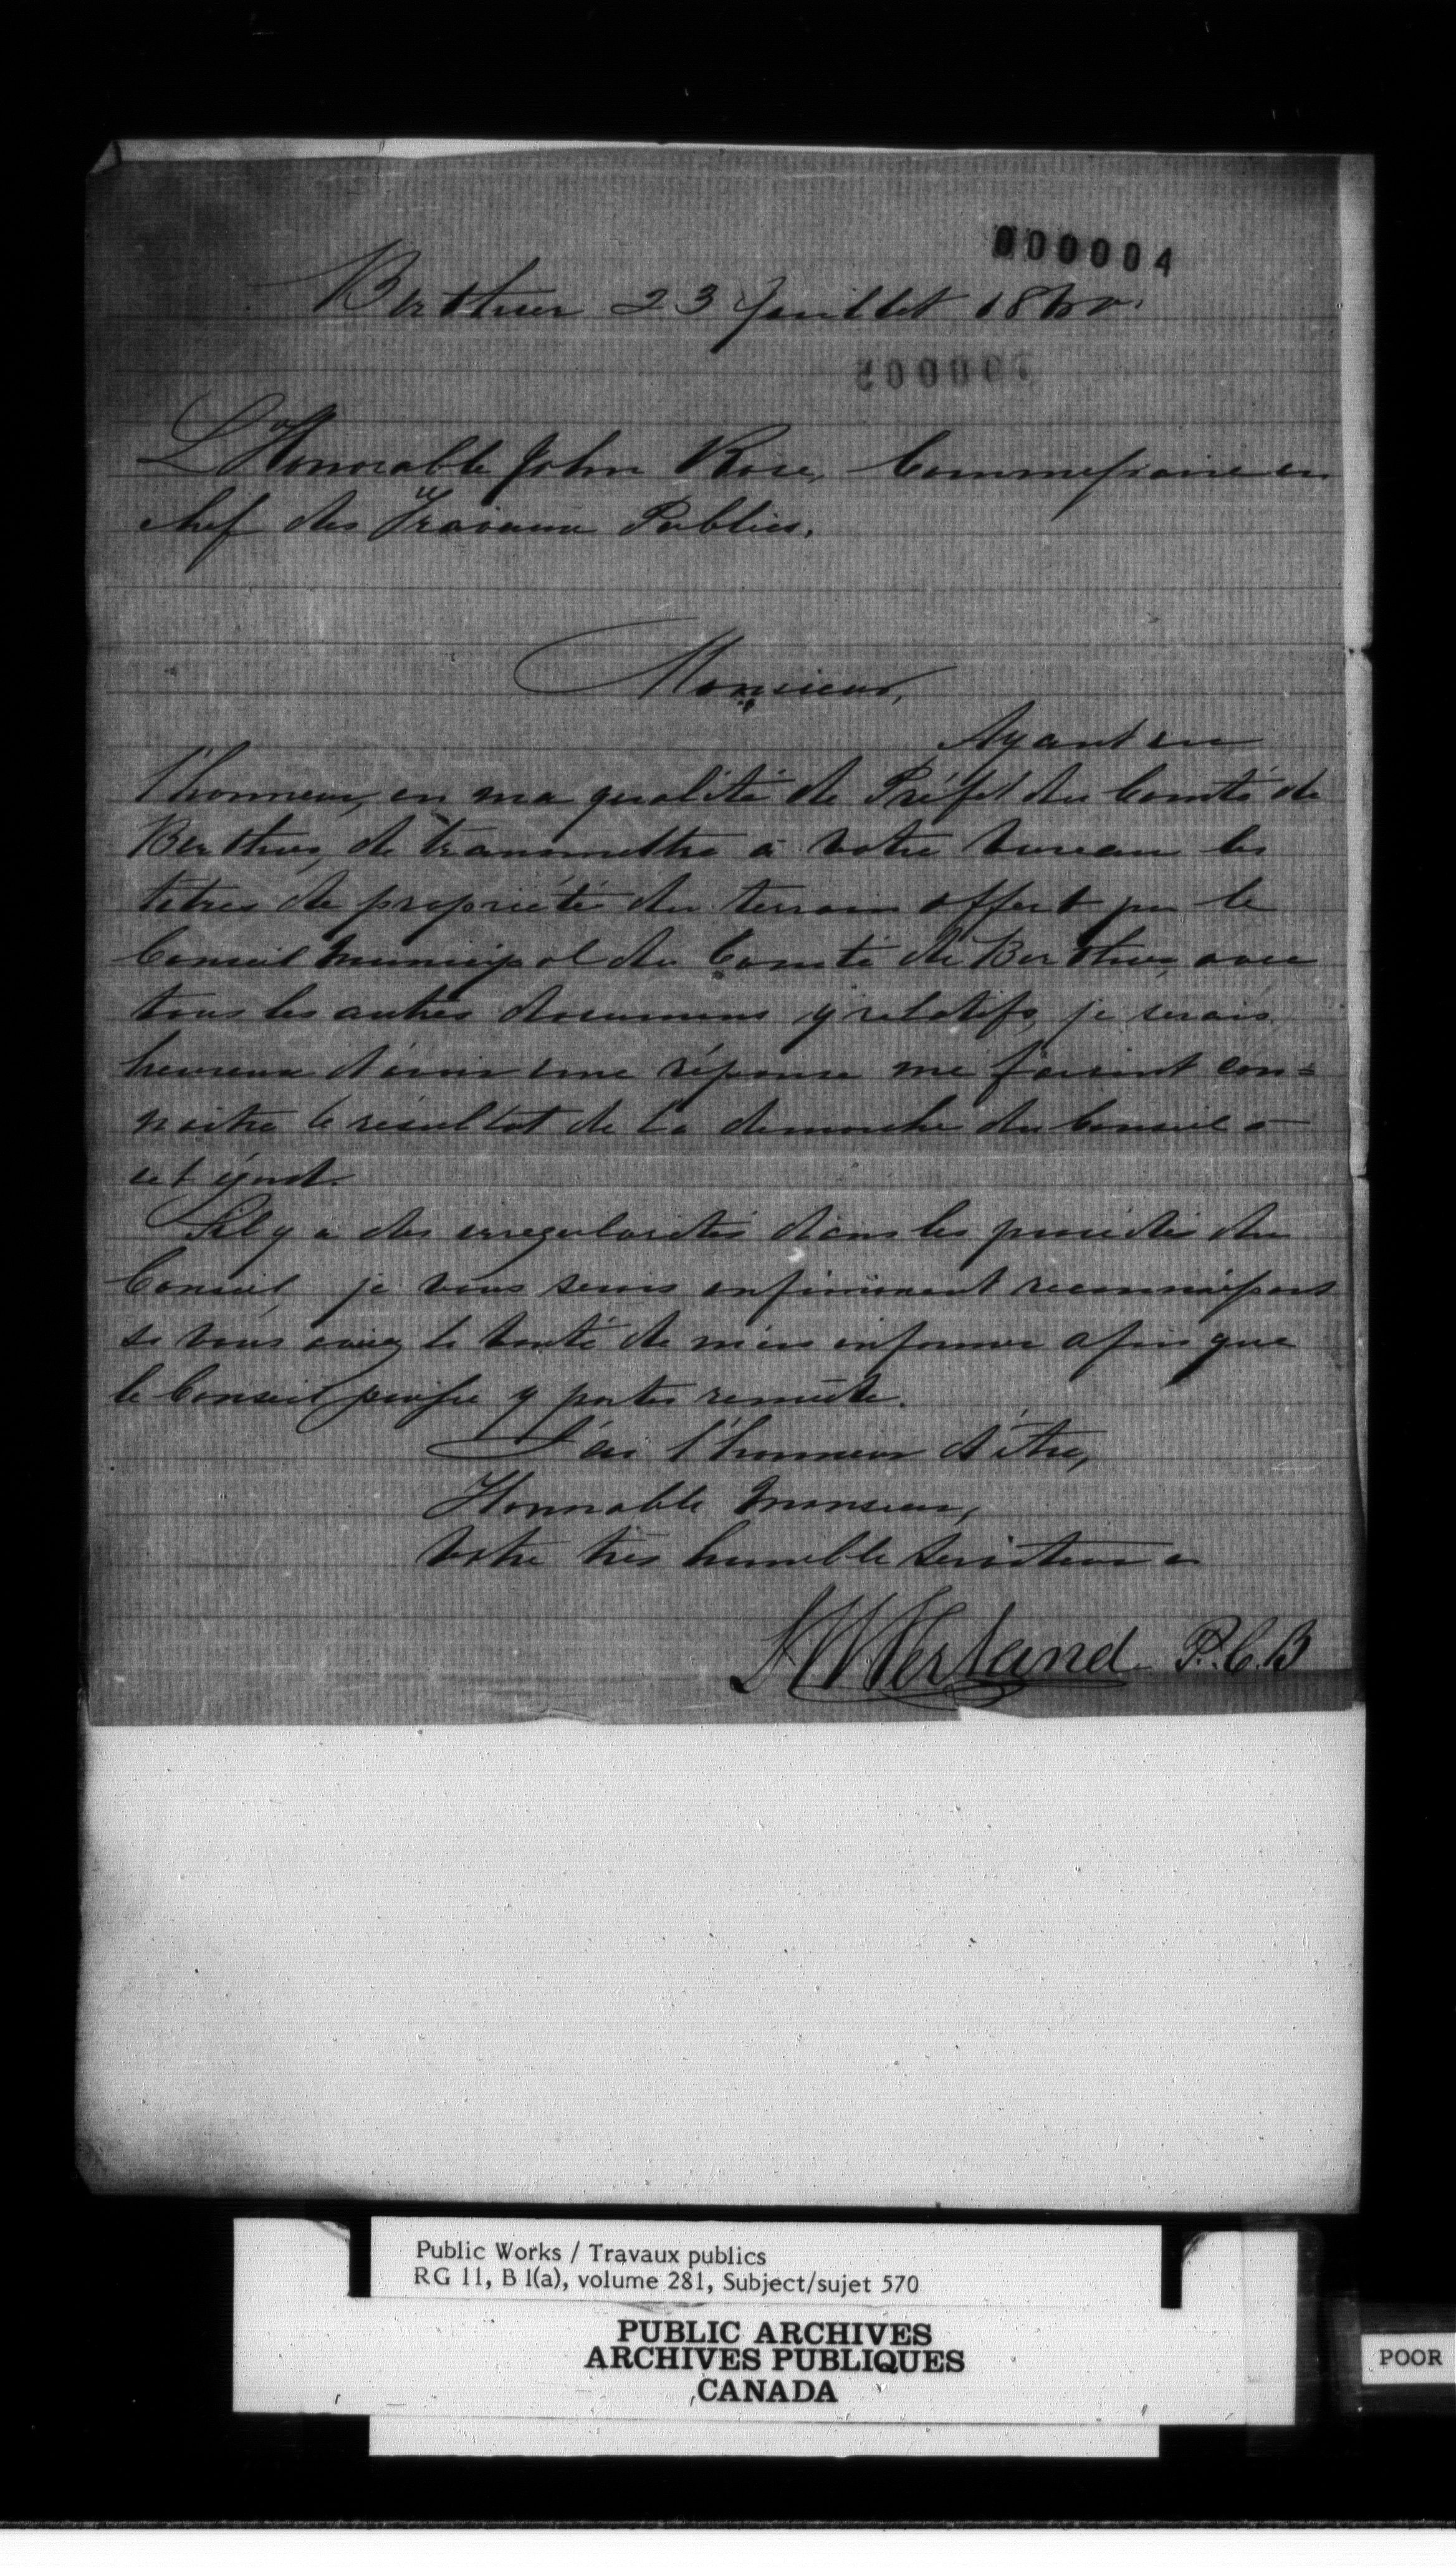 000004
Berthier 23 Juillet 1860.
L'Honorable John Rose, Commissaire en
chef des Travaux Publics.
Monsieur,
Ayant eu
l'honneur, en ma qualité de Préfet du Comté de
Berthier, de transmettre à votre bureau les
titres de propriété du terrain offert par le
Conseil Municipal du Comté de Berthier, avec
tous les autres documens y relatifs, je serais
heureux d'avoir une réponse me faisant con=
naitre le résultat de la demande du Conseil à
cet égard.
S'il y a des irregularités dans les procédés du
Conseil, je vous serais infiniment reconnaissant
si vous aviez la bonté de m'en informer afin que
le Conseil puisse y porter remède.
J'ai l'honneur d'être,
Honorable Monsieur,
Votre très humble Serviteur
P.C.B
Public Works / Travaux publics
RG 11, B 1(a), volume 281, Subject/sujet 570
PUBLIC ARCHIVES
ARCHIVES PUBLIQUES
CANADA
POOR